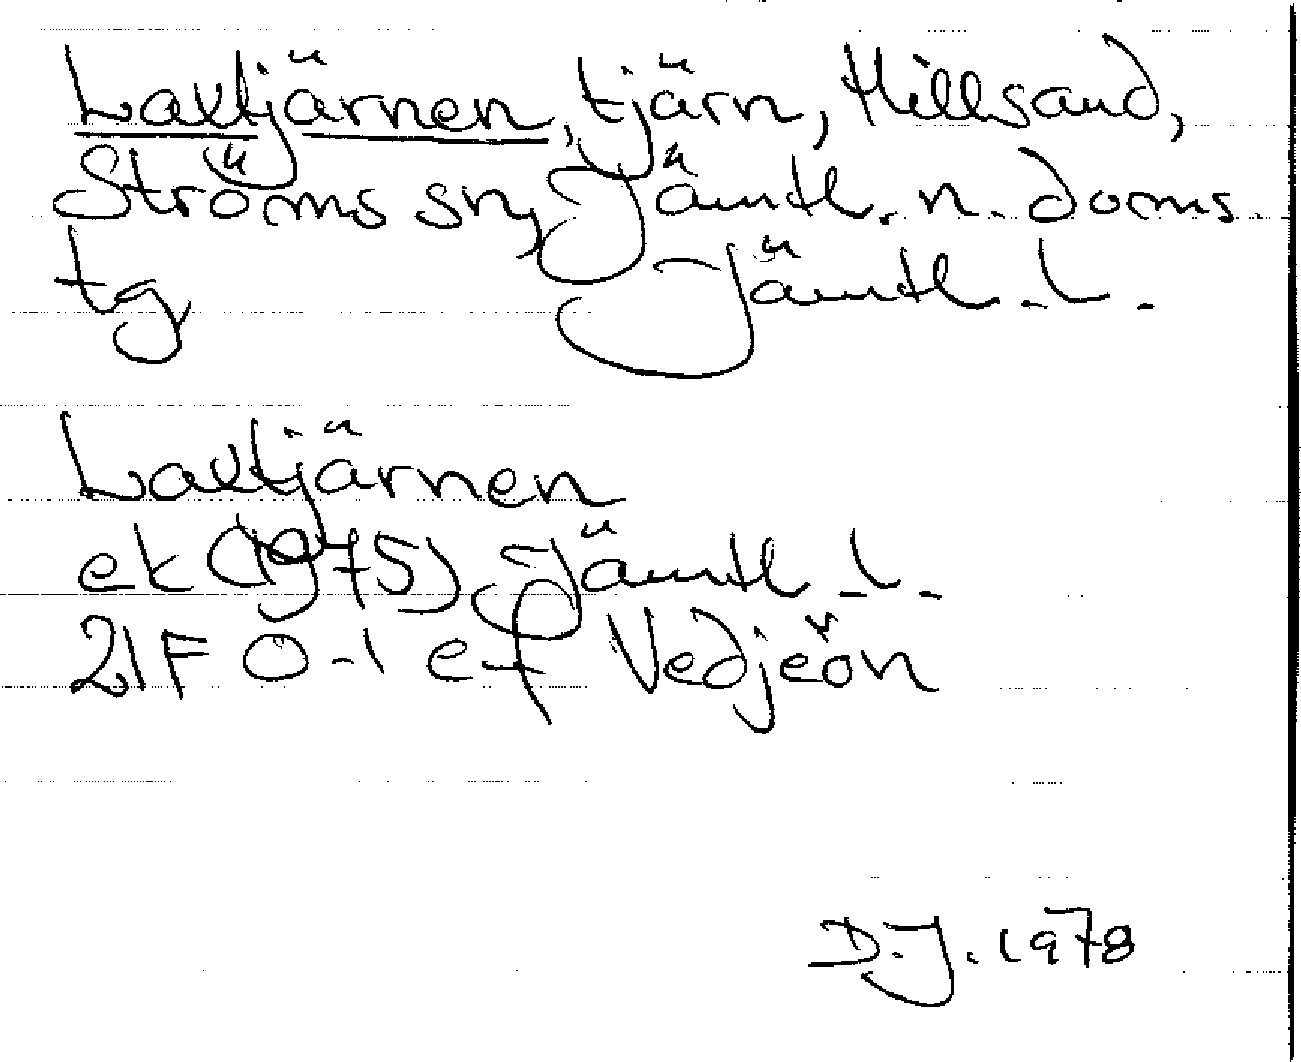 Laxtjärnen, tjärn, Hillsand,
Ströms sn, Jämtl. n. doms.
tg Jämtl. l.
Laxtjärnen
ek (1975) Jämtl. l.
21F 0-1 ef Vedjeön
D.J. 1978